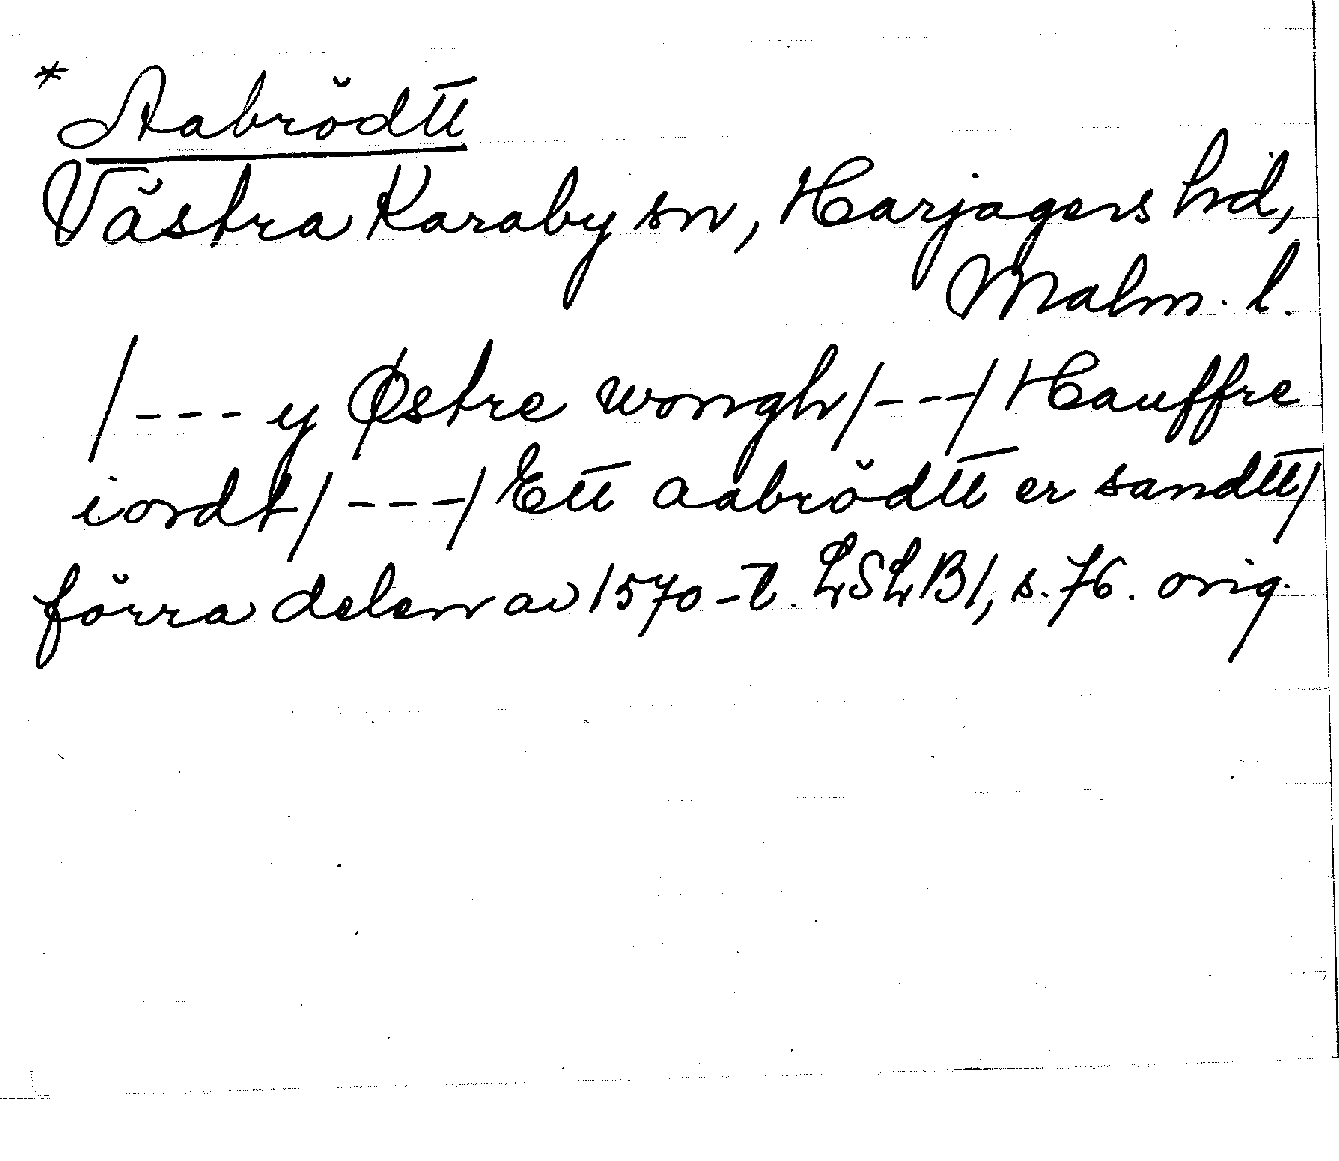 * Aabrödtt
Västra Karaby sn, Harjagers hd,
Malm. l.
/--- y Østre wongh/---/ Hauffre
iordt/---/ Ett aabrödtt er sandtt/
förra delen av 1570-t. LSLB1, s. 76. orig.